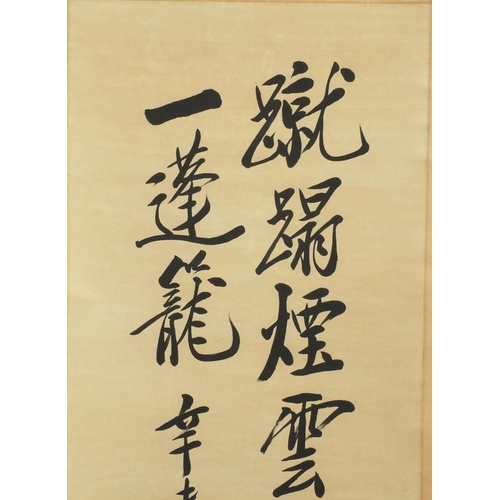 蹴蹋煙雲
一蓬籠
辛